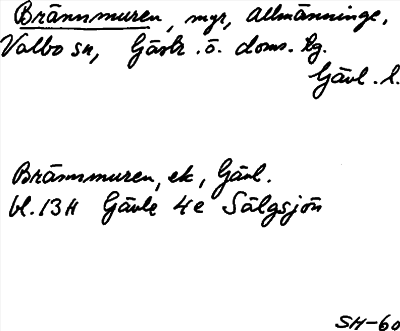 Brännmuren, myr, Allmänninge,
Valbo sn, Gästr. ö. doms. hg.
Gävl. l.
Brännmuren, ek, Gävl.
bl. 13H Gävle 4e Sälgsjön
SH-60